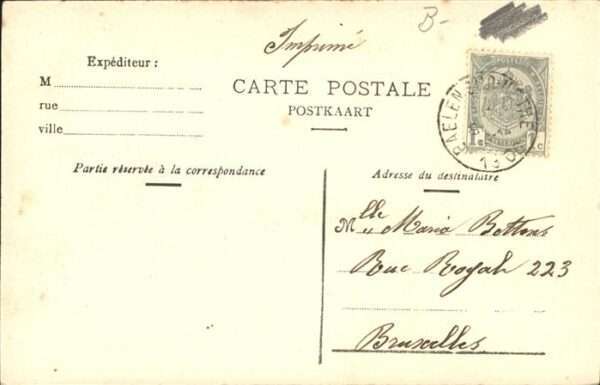 B-
Imprimé
Expéditeur :
M
rue
ville
CARTE POSTALE
POSTKAART
Partie réservée à la correspondance
Adresse du destinataire
Mlle Maria Bottens
Rue Royale 223
Bruxelles